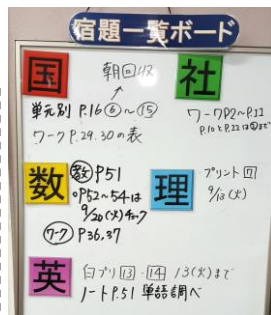 宿題一覧ボード
国
朝回収
単元別 P.16⑥～⑮
ワークP.29.30の表
社
ワークP2～P.11
数
教P51
○P52～54は
9/20(火)チェック
ワークP36,37
理
プリント7
9/13(火)
英
白プリ13・14 13(火)まで
ノートP.51 単語調べ